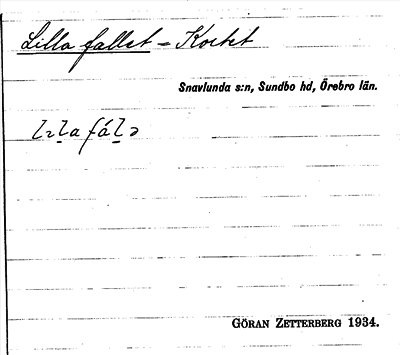 Lilla fallet = Kortet
Snavlunda s:n, Sundbo hd, Örebro län.
GÖRAN ZETTERBERG 1934.